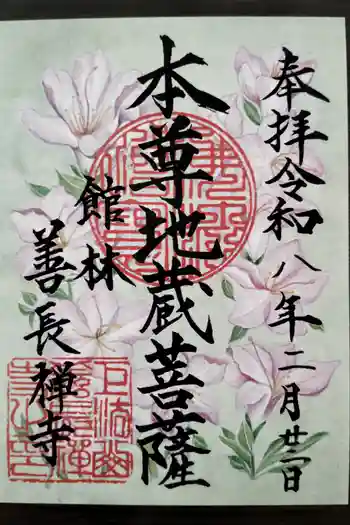 奉拝 令和八年二月廿二日
本尊地蔵菩薩
館林
善長禅寺